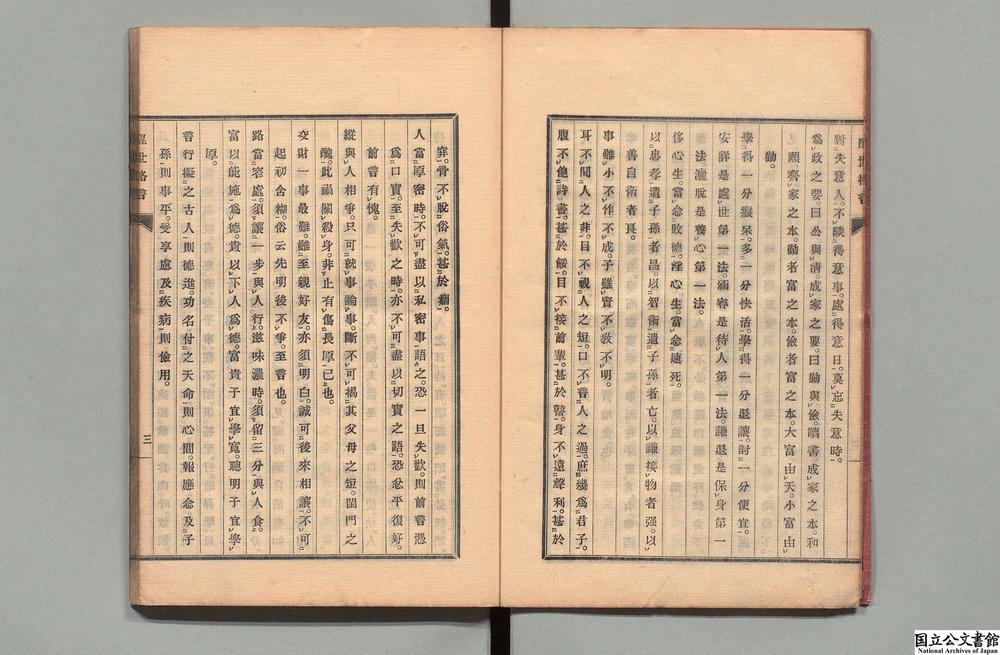 對失意人。不談得意事。處得意日。莫忘失意時。
爲政之要。曰公與淸。成家之要。曰勤與儉。讀書。成家之本。和
順。齊家之本。勤者富之本。儉者富之本。大富由天。小富由
勤。
學得一分癡呆。多一分快活。學得一分退讓。討一分便宜。
安詳是處世第一法。涵容是待人第一法。謙退是保身第一
法。灑脫是養心第一法。
侈心生。當念敗德。淫心生。當念速死。
以忠孝遺子孫者昌。以智術遺子孫者亡。以謙接物者强。以
善自衛者良。
事雖小不作不成。子雖賢不敎不明。
耳不聞人之非。目不視人之短。口不言人之過。庶幾爲君子。
腹不飽詩書。甚於餒。目不接前輩。甚於瞽。身不遠聲利。甚於
穽。骨不脫俗氣。甚於痼。
人當厚密時。不可盡以私密事語之。恐一旦失歡。則前言憑
爲口實。至失歡之時。亦不可盡以切實之語。恐忿平復好。
前言有愧。
縱與人相爭。只可就事論事。斷不可揭其父母之短。閨門之
醜。此禍關殺身。非止有傷長厚已也。
交財一事最難。雖至親好友。亦須明白。誠可後來相讓。不可
起初含糊。俗云先明後不爭。至言也。
路當窄處。須讓一步與人行。滋味濃時。須留三分與人食。
富以能施爲德。貴以下人爲德。富貴子宜學寬。聰明子宜學
厚。
言行擬之古人則德進。功名付之天命則心閒。報應念及子
孫則事平。受享慮及疾病則儉用。
三
國立公文書館
National Archives of Japan